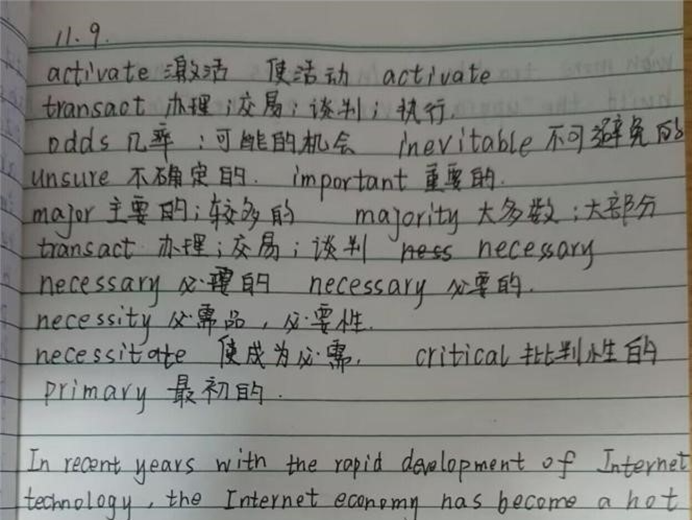 11.9.
activate 激活 使活动 activate
transact 办理;交易;谈判;执行.
odds 几率 ;可能的机会 inevitable 不可避免的
unsure 不确定的. important 重要的.
major 主要的;较多的 majority 大多数;大部分
transact 办理;交易;谈判 necessary
necessary 必要的 necessary 必要的.
necessity 必需品,必要性.
necessitate 使成为必需. critical 批判性的
primary 最初的.
In recent years with the rapid development of Internet
technology, the Internet economy has become a hot